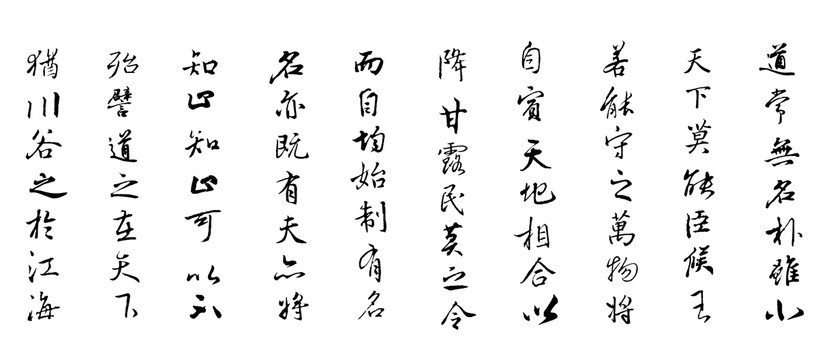 道常無名朴雖小
天下莫能臣候王
若能守之萬物將
自賓天地相合以
降甘露民莫之令
而自均始制有名
名亦既有夫亦將
知止知止可以不
殆譬道之在天下
猶川谷之於江海